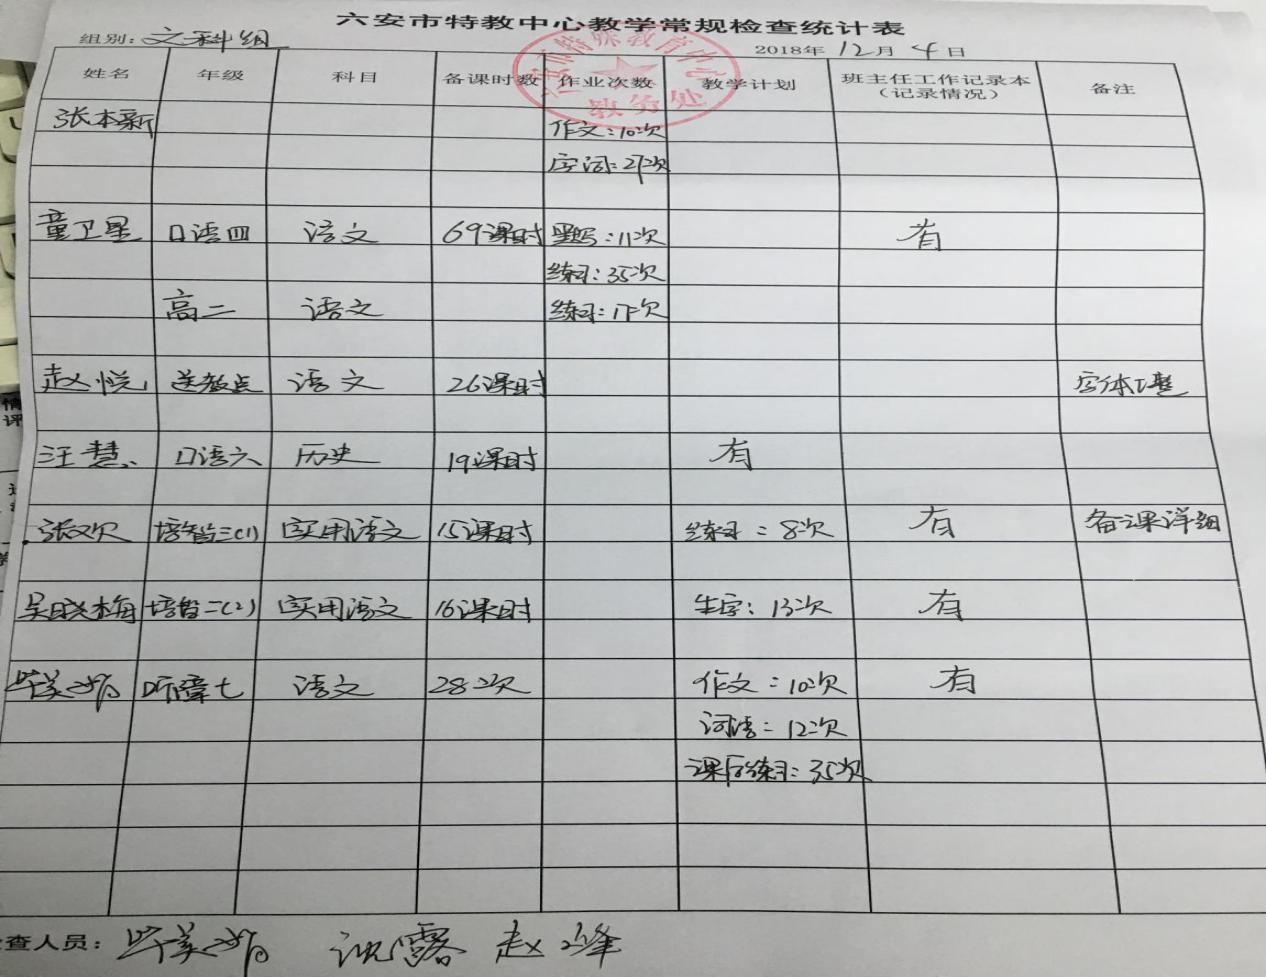 六安市特教中心教学常规检查统计表
组别: 文科组 2018年 12月 4日
姓名 年级 科目 备课时数 作业次数 教学计划 班主任工作记录本（记录情况） 备注
六安市特殊教育中心
教务处
张本新 作文:10次
字词:27次
童卫星 口语四 语文 69课时 默写:11次 有
练习:35次
高二 语文 练习:17次
赵悦 送教点 语文 26课时 字体工整
汪慧 口语六 历史 19课时 有
张欢 培智三(1) 实用语文 15课时 练习:8次 有 备课详细
吴晓梅 培智二(2) 实用语文 16课时 生字:13次 有
毕美娟 听障七 语文 28次 作文:10次 有
词语:12次
课后练习:35次
查人员: 毕美娟 沈露 赵峰